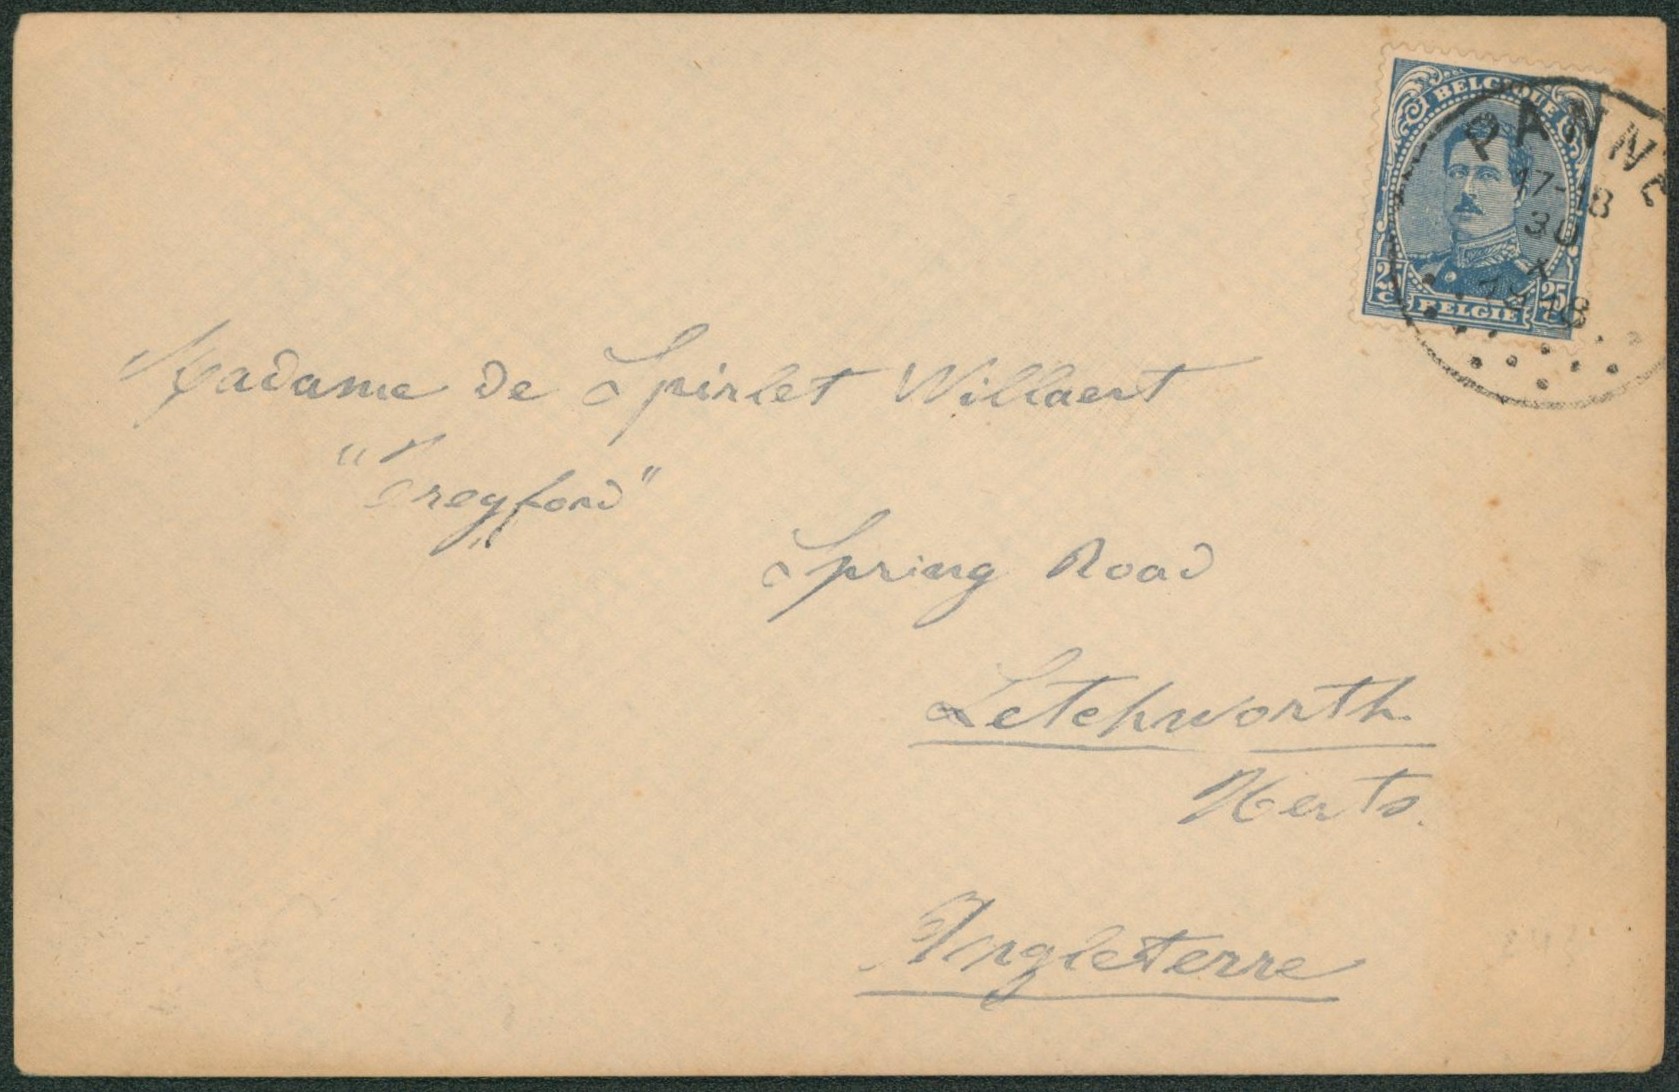 BELGIQUE
PANNE
17-18
30
X
1918
25 C 25 C
BELGIE
Madame de Spirlet Willaert
"Greyford"
Spring Road
Letchworth
Herts.
Angleterre